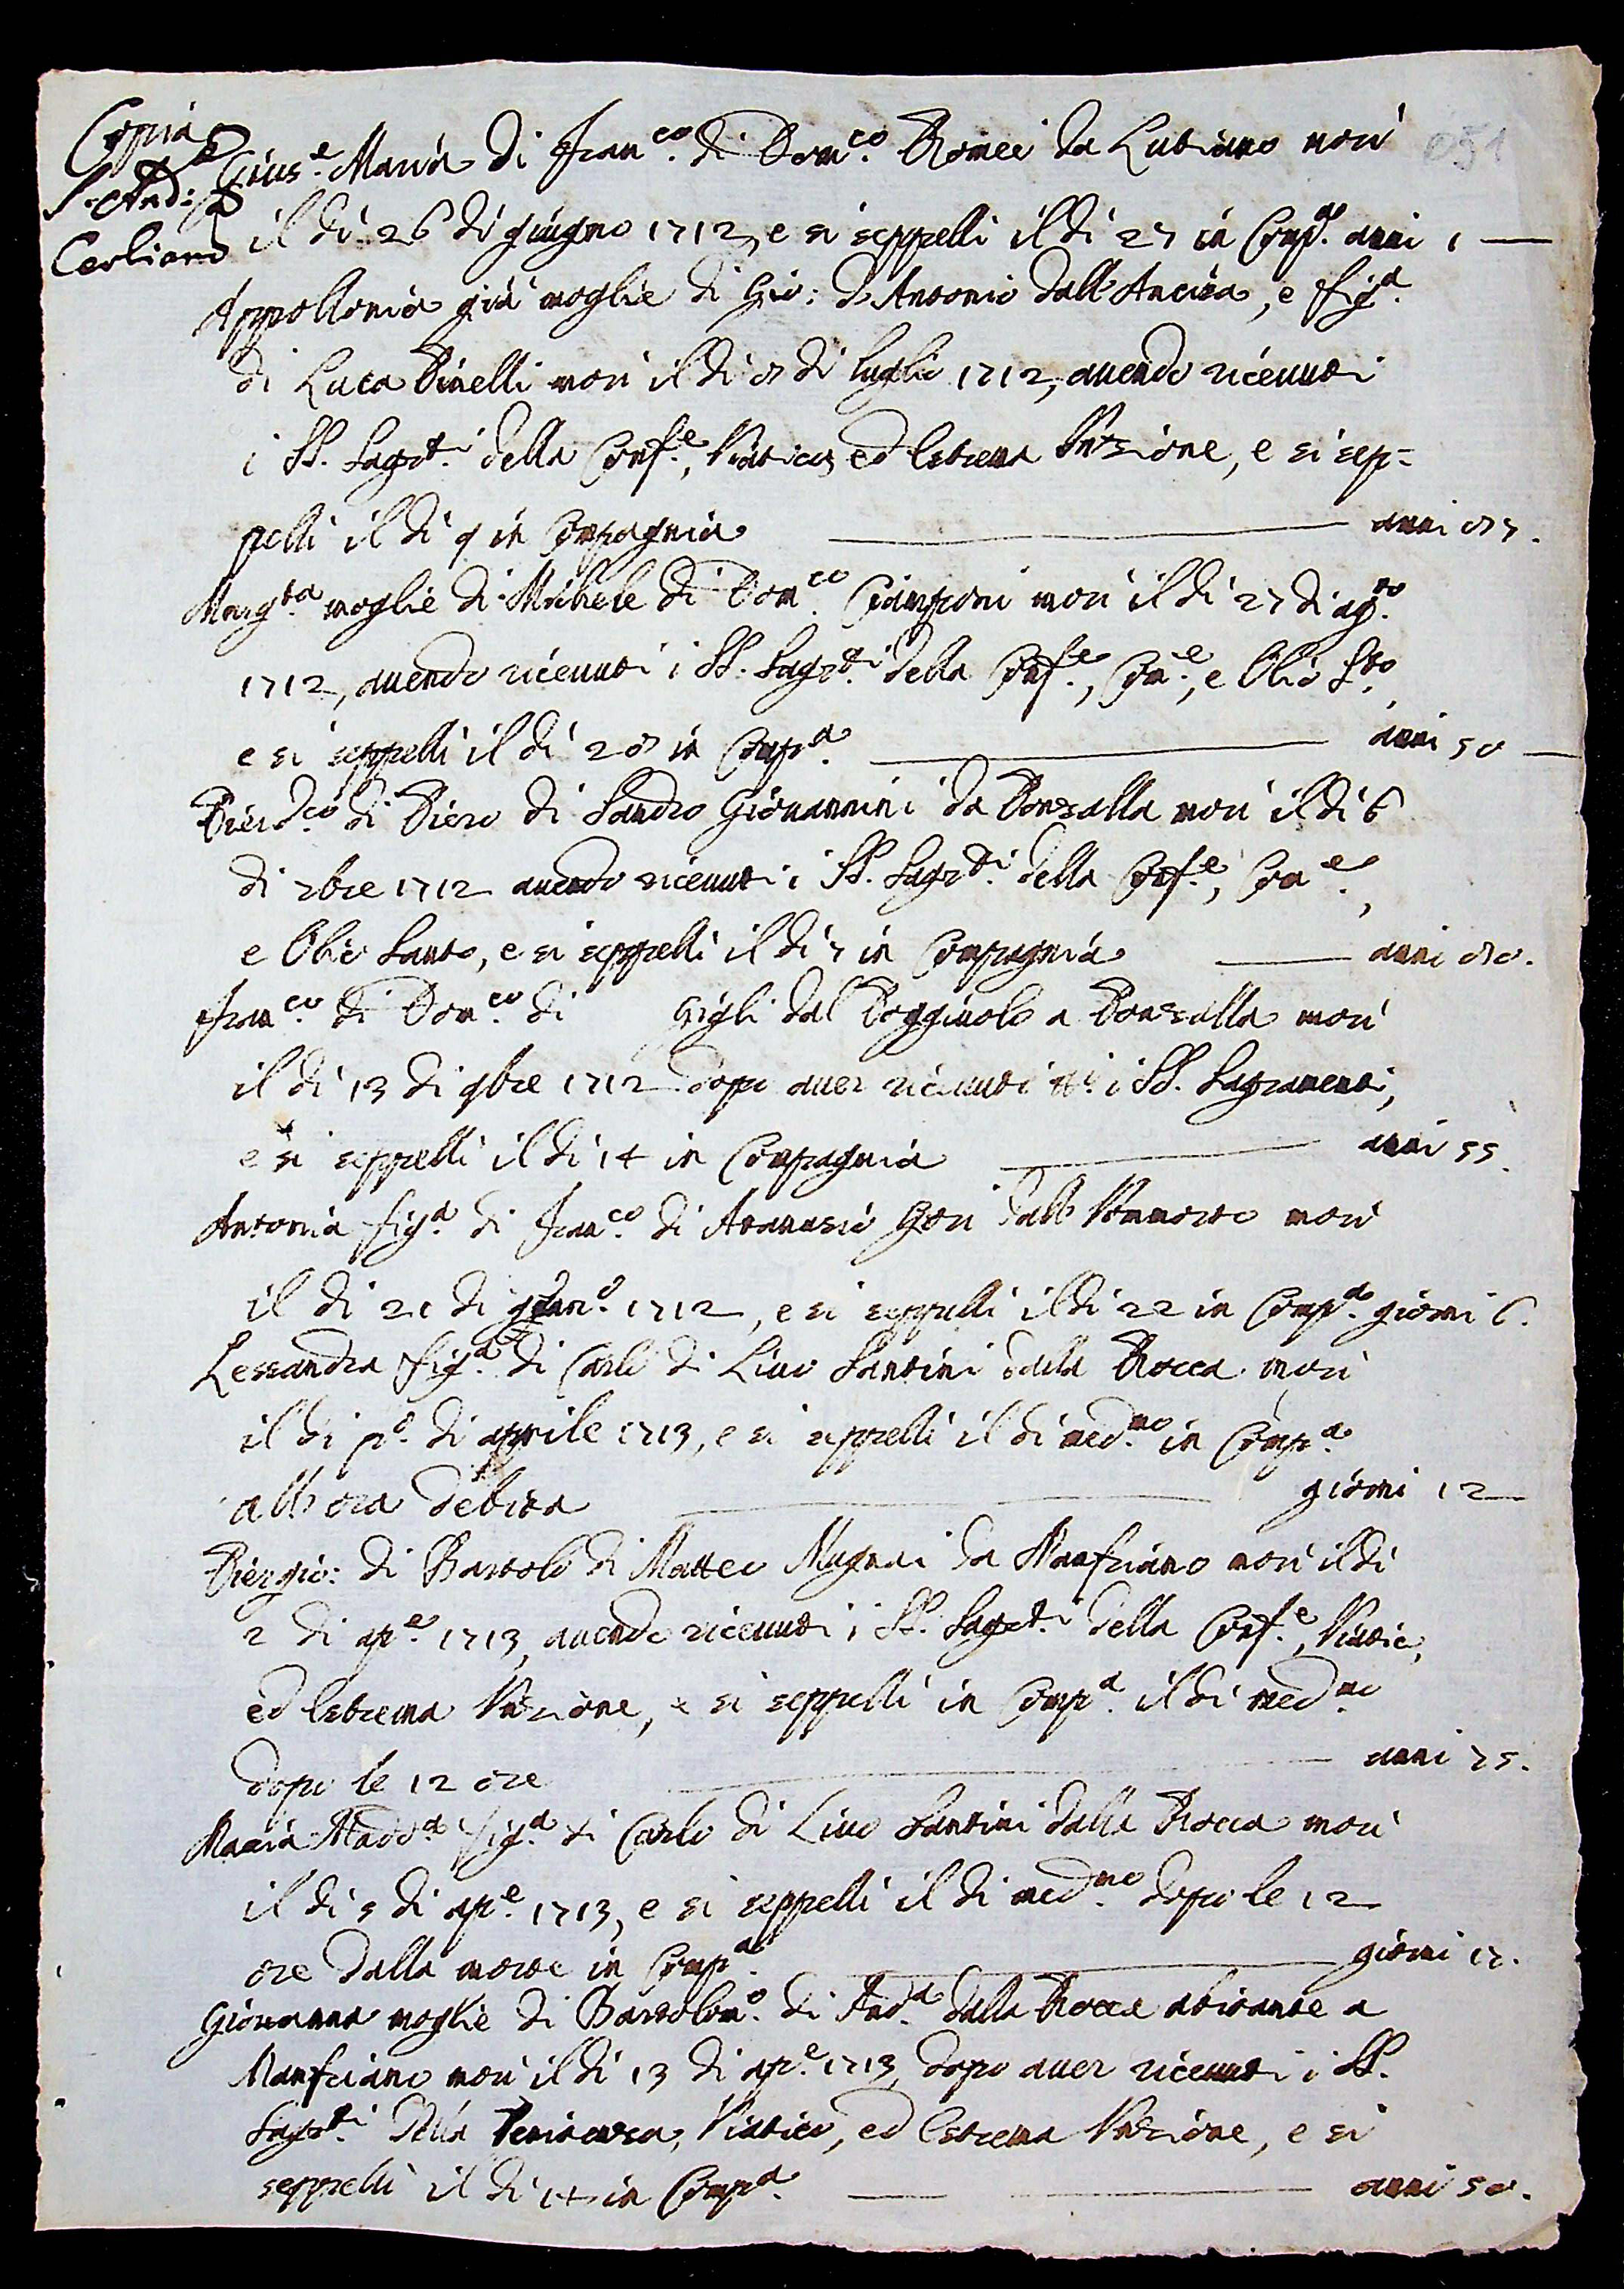 Copia
S. And:a
Cerliano
051
Gius.e Maria di Fran.co di Dom.co Romei da Lubiano morì
il dì 26 di giugno 1712, e si seppellì il dì 27 in Comp.a anni 1
Appollonia già moglie di Gio: d'Antonio dall'Ancisa, e fig.a
di Luca Pinelli morì il dì 8 di luglio 1712, avendo ricevuti
i SS. Sagr.ti della Conf.e, Viatico, ed Estrema Unzione, e si sep=
pellì il dì 9 in Compagnia anni 87.
Marg.ta moglie di Michele di Dom.co Ciamponi morì il dì 27 di ag.to
1712, avendo ricevuti i SS. Sagr.ti della Conf.e, Com.e, e Olio S.to,
e si seppellì il dì 28 in Comp.a anni 50
Pierd.co di Piero di Sandro Giovannini da Ponzalla morì il dì 6
di 7bre 1712 avendo ricevuti i SS. Sagr.ti della Conf.e, Com.e,
e Olio Santo, e si seppellì il dì 7 in Compagnia anni 80.
Fran.co di Dom.co di Gigli dal Poggiuolo a Ponzalla morì
il dì 13 di 9bre 1712 dopo aver ricevuti i SS. Sagramenti,
e si seppellì il dì 14 in Compagnia anni 55.
Antonia fig.a di Fran.co di Atanasio Gori dall' morì
il dì 21 di genn.o 1712, e si seppellì il dì 22 in Comp.a giorni 6.
Lessandra fig.a di Carlo di Lino Santini dalla Rocca morì
il dì p.o di aprile 1713, e si seppellì il dì med.mo in Comp.a
all'ora debita giorni 12
Piergio: di Bartolo di Matteo Magnai da Manfriano morì il dì
2 di ap.e 1713, avendo ricevuti i SS. Sagr.ti della Conf.e, Viatic,
ed Estrema Unzione, e si seppellì in Comp.a il dì med.mo
dopo le 12 ore anni 75.
Maria Madd.a fig.a di Carlo di Lino Santini dalla Rocca morì
il dì 5 di ap.e 1713, e si seppellì il dì med.mo dopo le 12
ore dalla morte in Comp.a giorni 17.
Giovanna moglie di Bartolom.o di And.a dalla Rocca abitante a
Manfriano morì il dì 13 di ap.e 1713, dopo aver ricevuti i SS.
Sagr.ti della Penitenza, Viatico, ed Estrema Unzione, e si
seppellì il dì 14 in Comp.a anni 50.